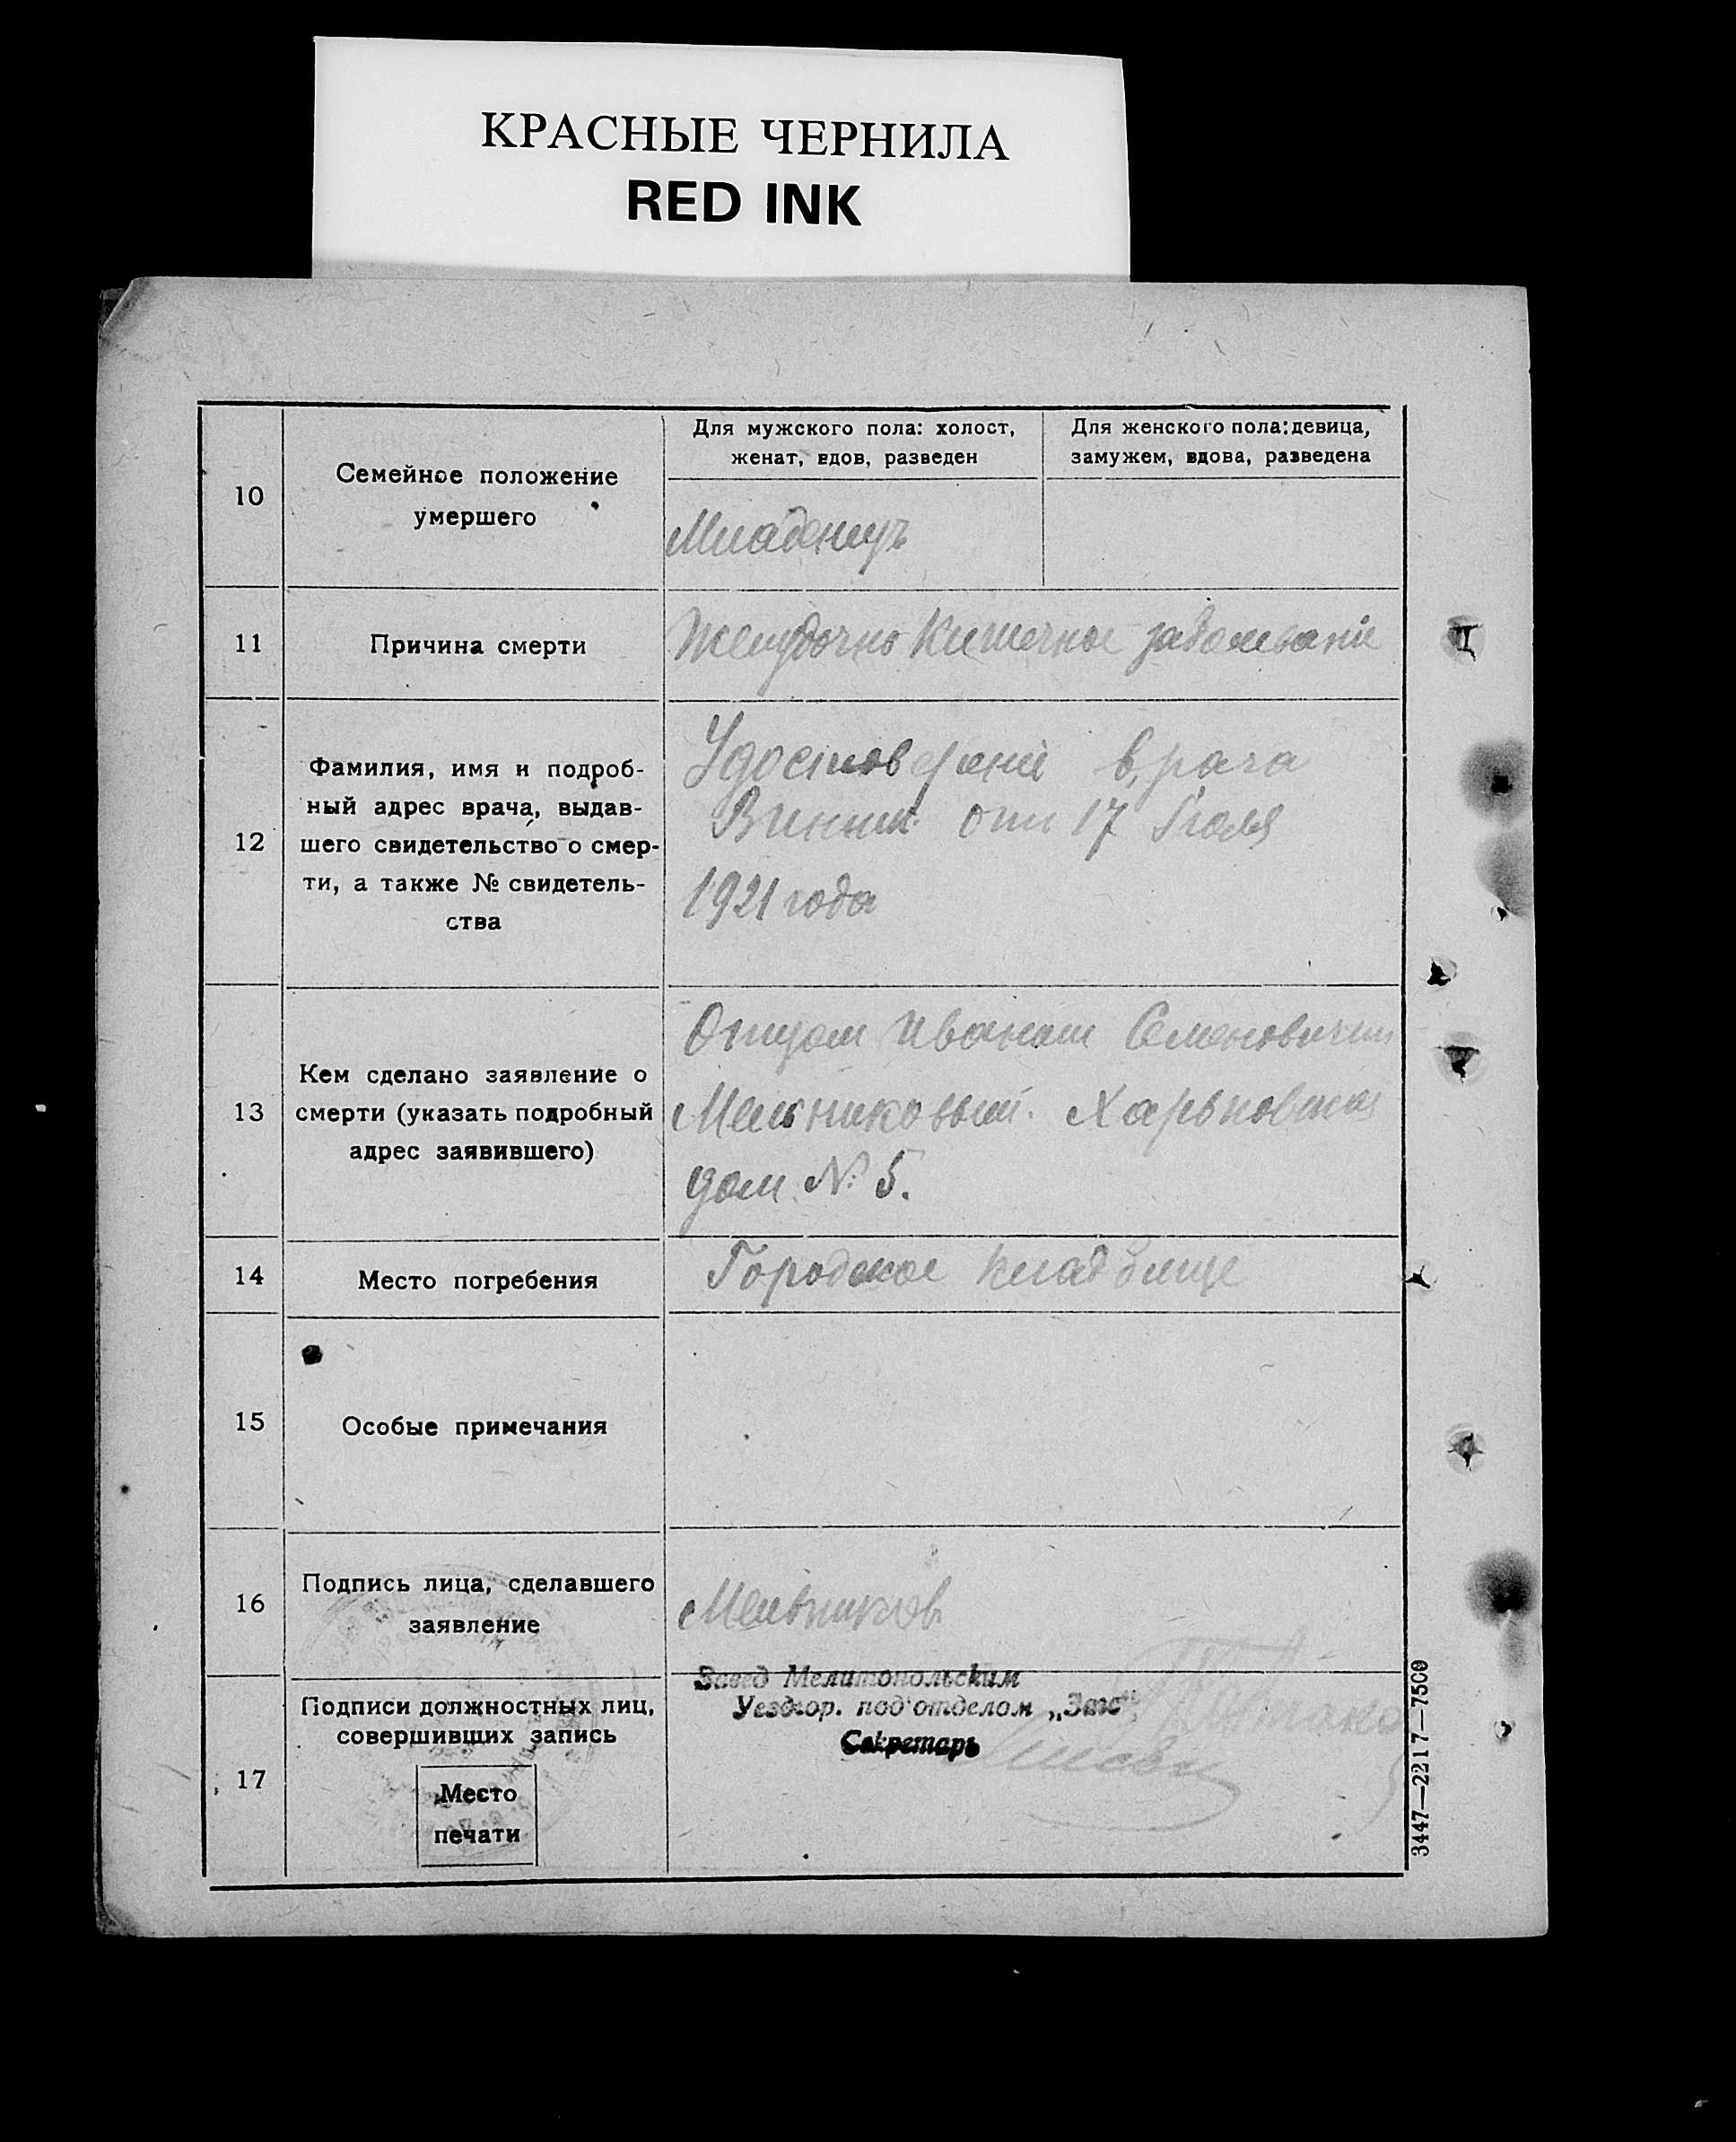 КРАСНЫЕ ЧЕРНИЛА
RED INK
10
Семейное положение
умершего
Для мужского пола: холост,
женат, вдов, разведен
Для женского пола: девица,
замужем, вдова, разведена
Младенец
11
Причина смерти
Желудочно Кишечное заболевание
12
Фамилия, имя и подроб-
ный адрес врача, выдав-
шего свидетельство о смер-
ти, а также № свидетель-
ства
Удостоверение врача
от 17 Июля
1921 года
13
Кем сделано заявление о
смерти (указать подробный
адрес заявившего)
Отцом Иваном Семеновичем
Мельниковым. Харьковская
дом № 5.
14
Место погребения
Городское кладбище
15
Особые примечания
16
Подпись лица, сделавшего
заявление
Мельников
17
Подписи должностных лиц,
совершивших запись
Место
печати
Завед Мелитопольским
Уездгор. под'отделом „Загс"
Секретарь
3447—2217—7500